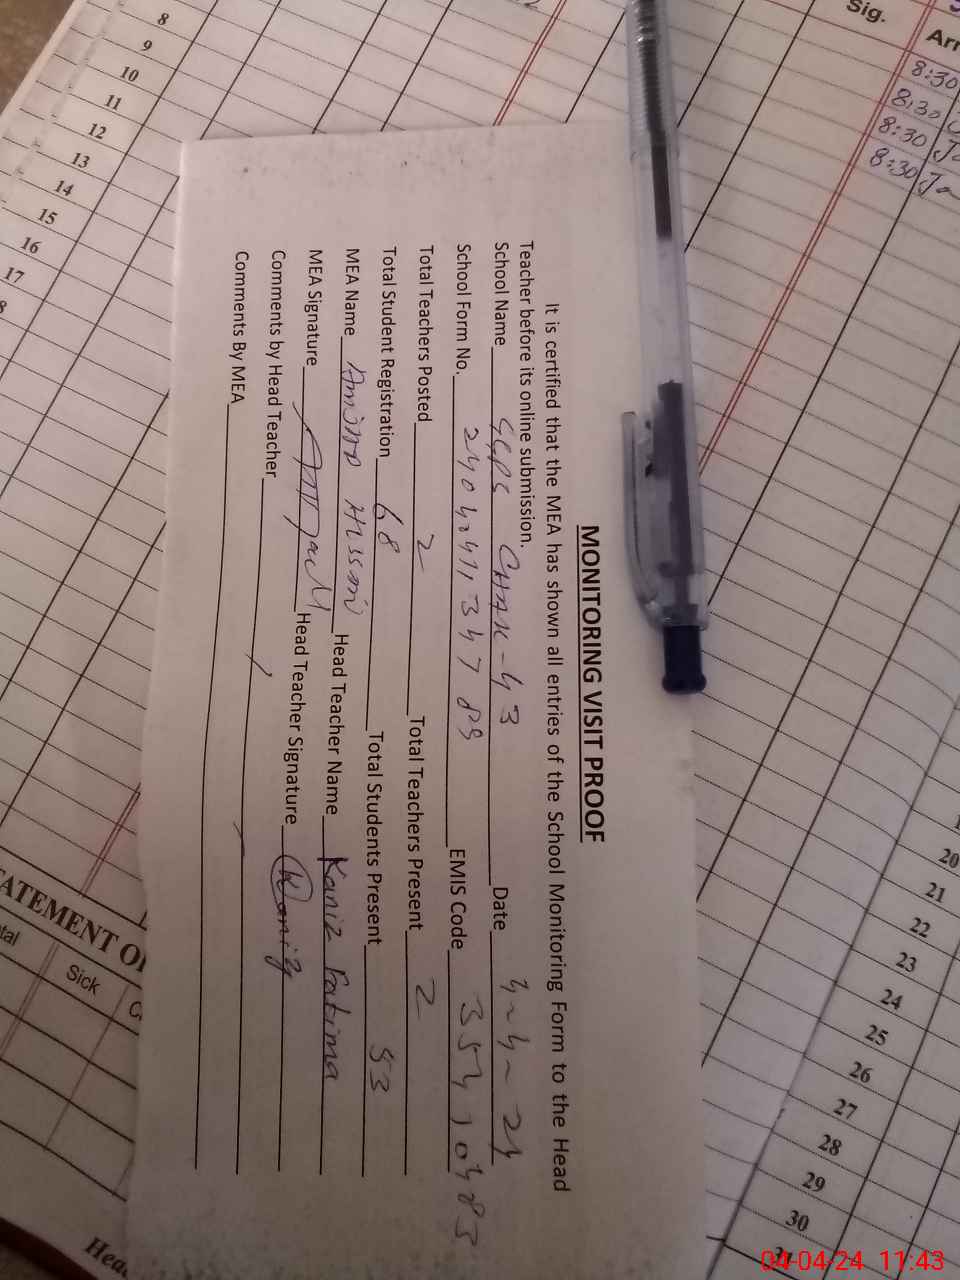 MONITORING VISIT PROOF
It is certified that the MEA has shown all entries of the School Monitoring Form to the Head
Teacher before its online submission.
School Name GGPS CHAK-43 Date 4-4-24
School Form No. EMIS Code
Total Teachers Posted 2 Total Teachers Present 2
Total Student Registration 68 Total Students Present 53
MEA Name Head Teacher Name Kaniz Fatima
MEA Signature Head Teacher Signature Kaniz
Comments by Head Teacher
Comments By MEA
8
9
10
11
12
13
14
15
16
17
Sig.
Arr
8:30
8:30
8:30
8:30
20
21
22
23
24
25
26
27
28
29
30
ATEMENT O
tal
Sick
Hea
04-04-24 11:43